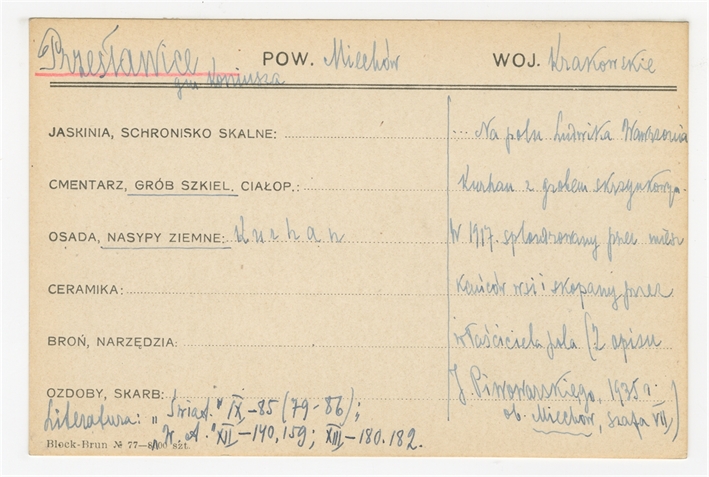 Przesławice POW. Miechów WOJ. Krakowskie
gm Koniusza
JASKINIA, SCHRONISKO SKALNE:
CMENTARZ, GRÓB SZKIEL, CIAŁOP.:
OSADA, NASYPY ZIEMNE: Kurhan
CERAMIKA:
BROŃ, NARZĘDZIA:
OZDOBY, SKARB:
Na polu Ludwika Wawrzonia
Kurhan z grobem skrzynkowym.
W 1917. splondrowany przez miesz
kańców wsi i skopany przez
właściciela pola (Z opisu
J. Piwowarskiego, 1935 r.
ob. Miechów, szafa VII)
Literatura: „Świat." IX-85 (79-86);
„W. A." XII-140, 159; XIII-180. 182.
Block-Brun № 77—8000 szt.